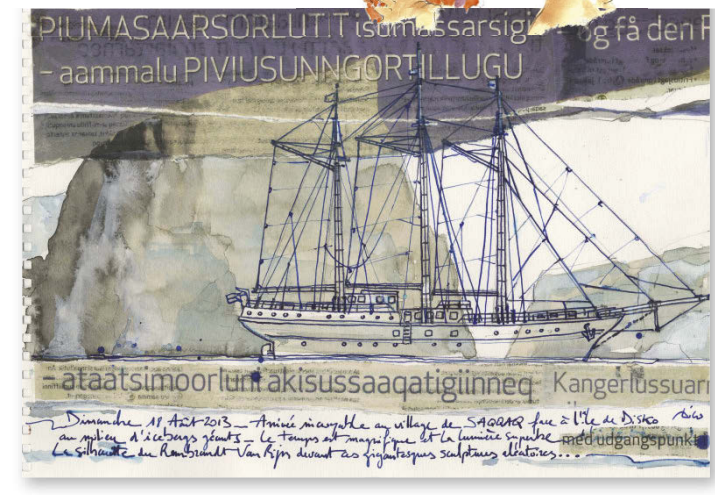 EPIUMASAARSORLUTIT isumassarsigi
og få den F
– aammalu PIVIUSUNNGORTILLUGU
– ataatsimoorluni akisussaaqatigiinneq
Kangerlussuar
Dimanche 18 Août 2013 – Arrivée incroyable au village de SAQQAQ face à l'île de Disko
au milieu d'icebergs géants – Le temps est magnifique et la lumière superbe
med udgangspunkt
La silhouette du Rembrandt Van Rijn devant ces gigantesques sculptures aléatoires...